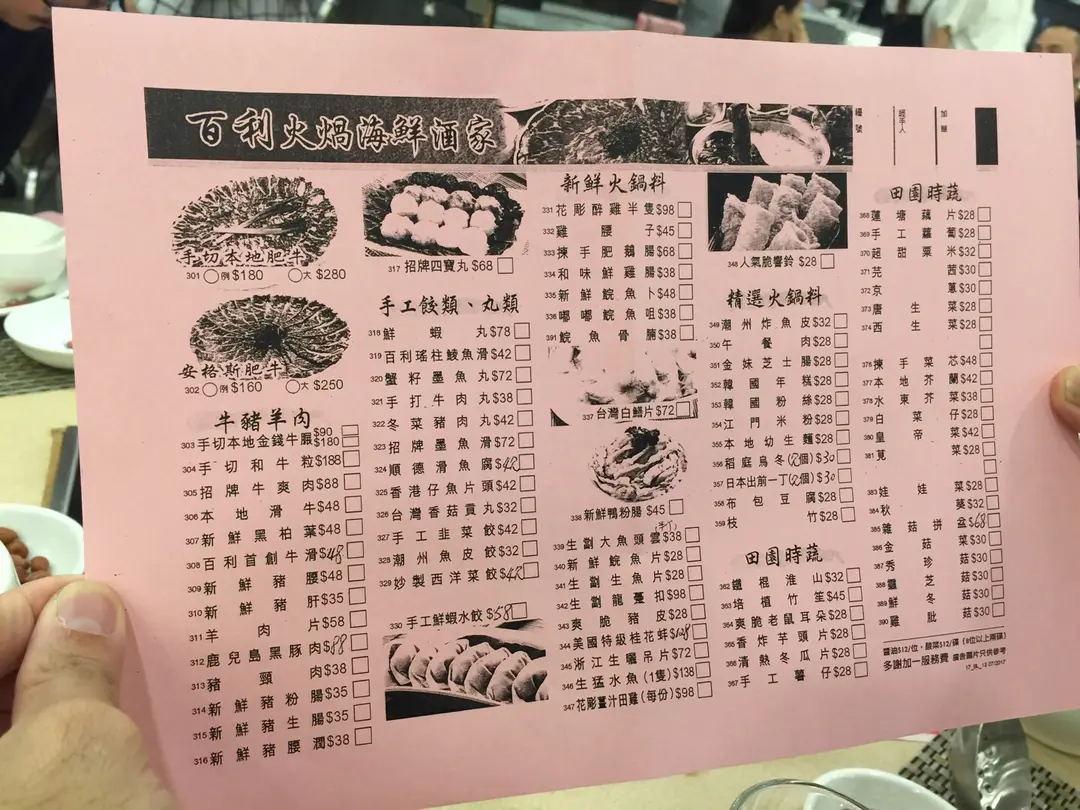 百利火煱海鮮酒家
編號
經手人
加單
手切本地肥牛
301 例 $180 大 $280
安格斯肥牛
302 例 $160 大 $250
牛豬羊肉
303 手切本地金錢牛𦟌 $90 $180
304 手切和牛粒 $188
305 招牌牛爽肉 $88
306 本地滑牛 $48
307 新鮮黑柏葉 $48
308 百利首創牛滑 $48
309 新鮮豬腰 $48
310 新鮮豬肝 $35
311 羊肉片 $58
312 鹿兒島黑豚肉 $88
313 豬頸肉 $38
314 新鮮豬粉腸 $35
315 新鮮豬生腸 $35
316 新鮮豬腰潤 $38
317 招牌四寶丸 $68
手工餃類、丸類
318 鮮蝦丸 $78
319 百利瑤柱鯪魚滑 $42
320 蟹籽墨魚丸 $72
321 手打牛肉丸 $38
322 冬菜豬肉丸 $42
323 招牌墨魚滑 $72
324 順德滑魚腐 $42
325 香港仔魚片頭 $42
326 台灣香菇貢丸 $32
327 手工韭菜餃 $42
328 潮州魚皮餃 $32
329 妙製西洋菜餃 $42
330 手工鮮蝦水餃 $58
新鮮火鍋料
331 花彫醉雞半隻 $98
332 雞腰子 $45
333 揀手肥鵝腸 $68
334 和味鮮雞腸 $38
335 新鮮鯇魚卜 $48
336 嘟嘟鯇魚咀 $38
391 鯇魚骨腩 $38
337 台灣白鱔片 $72
338 新鮮鴨粉腸 $45
339 生劏大魚頭雲 $38
340 新鮮鯇魚片 $28
341 生劏生魚片 $28
342 生劏龍躉扣 $98
343 爽脆豬皮 $28
344 美國特級桂花蚌
345 浙江生曬吊片 $72
346 生猛水魚 (1隻) $138
347 花彫薑汁田雞 (每份) $98
348 人氣脆響鈴 $28
精選火鍋料
349 潮州炸魚皮 $32
350 午餐肉 $28
351 金妹芝士腸 $28
352 韓國年糕 $28
353 韓國粉絲 $28
354 江門米粉 $28
355 本地幼生麵 $28
356 稻庭烏冬 (2個) $30
357 日本出前一丁 (2個) $30
358 布包豆腐 $28
359 枝竹 $28
田園時蔬
362 鐵棍淮山 $32
363 培植竹笙 $45
364 爽脆老鼠耳朵 $28
365 香炸芋頭片 $28
366 清熱冬瓜片 $28
367 手工薯仔 $28
田園時蔬
368 蓮塘藕片 $28
369 手工蘿蔔 $28
370 超甜粟米 $32
371 芫茜 $30
372 京蔥 $30
373 唐生菜 $28
374 西生菜 $28
376 揀手菜芯 $48
377 本地芥蘭 $42
378 水東芥菜 $38
379 白菜仔 $28
380 皇帝菜 $42
381 莧菜 $28
383 娃娃菜 $28
384 秋葵 $32
385 雜菇拼盆 $68
386 金菇菜 $30
387 秀珍菇 $30
388 靈芝菇 $30
389 鮮冬菇 $30
390 雞肶菇 $30
醬油$12/位，酸菜$12/碟 (8位以上兩碟)
多謝加一服務費 廣告圖片只供參考